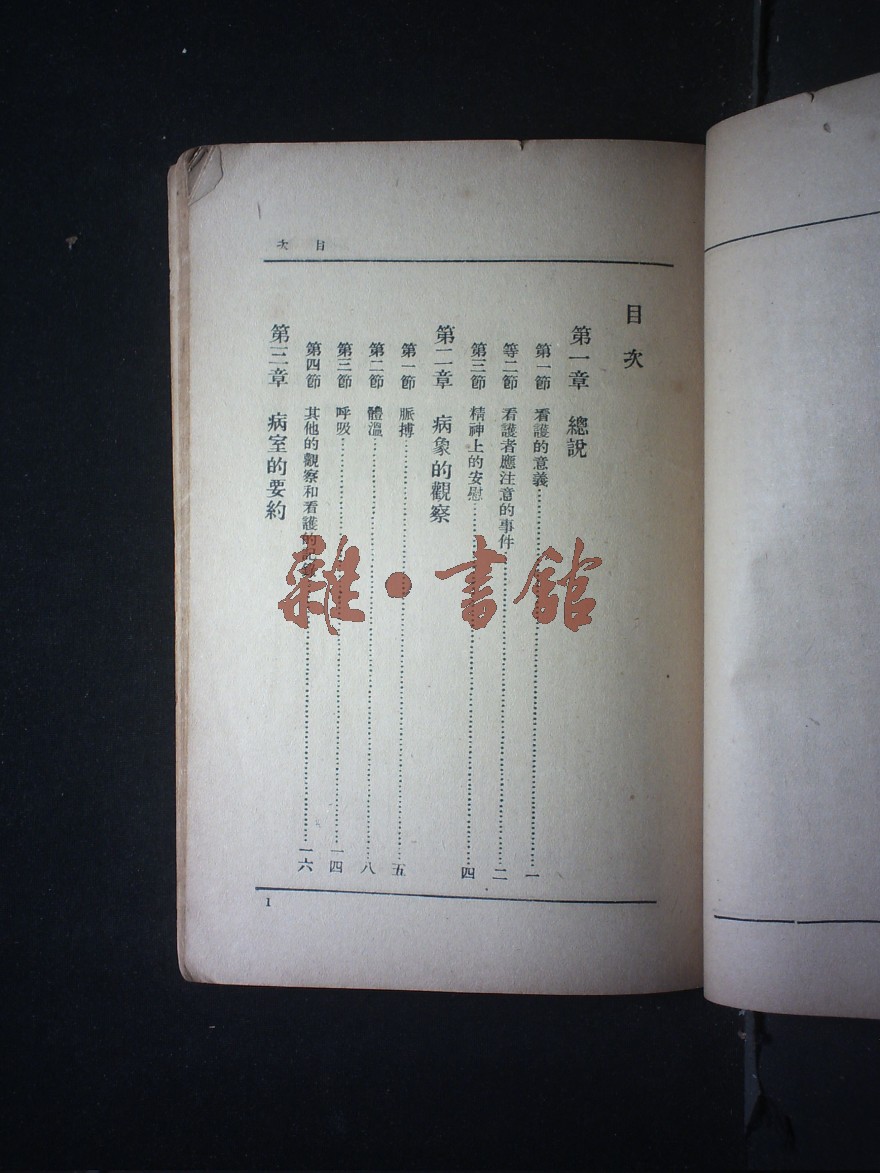 目次
目次
第一章 總說
第一節 看護的意義……一
等二節 看護者應注意的事件……二
第三節 精神上的安慰……四
第二章 病象的觀察
第一節 脈搏……五
第二節 體溫……八
第三節 呼吸……一四
第四節 其他的觀察和看護的……一六
第三章 病室的要約
1
雜·書館